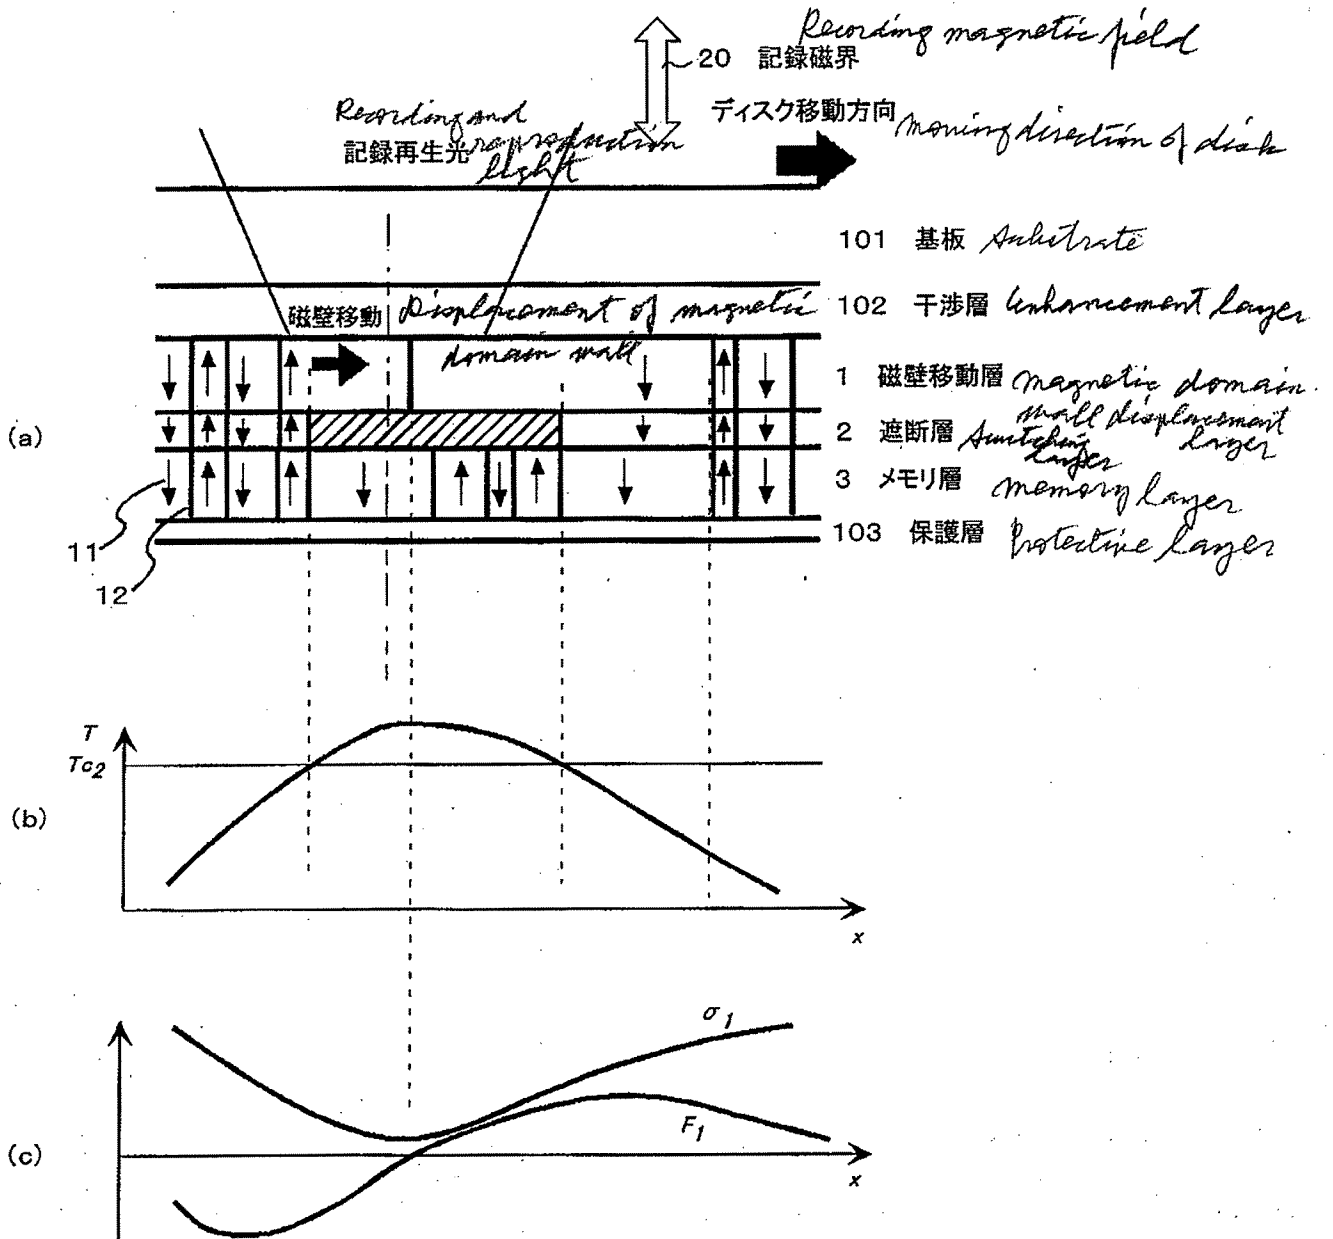 Recording magnetic field
20 記録磁界
Recording and
reproduction
light
記録再生光
ディスク移動方向 moving direction of disk
101 基板 Substrate
102 干渉層 Enhancement layer
磁壁移動 Displacement of magnetic
domain wall
1 磁壁移動層 magnetic domain
wall displacement
layer
(a)
2 遮断層 Switching
layer
3 メモリ層 memory layer
103 保護層 Protective layer
11
12
T
Tc2
(b)
x
σ1
F1
(c)
x